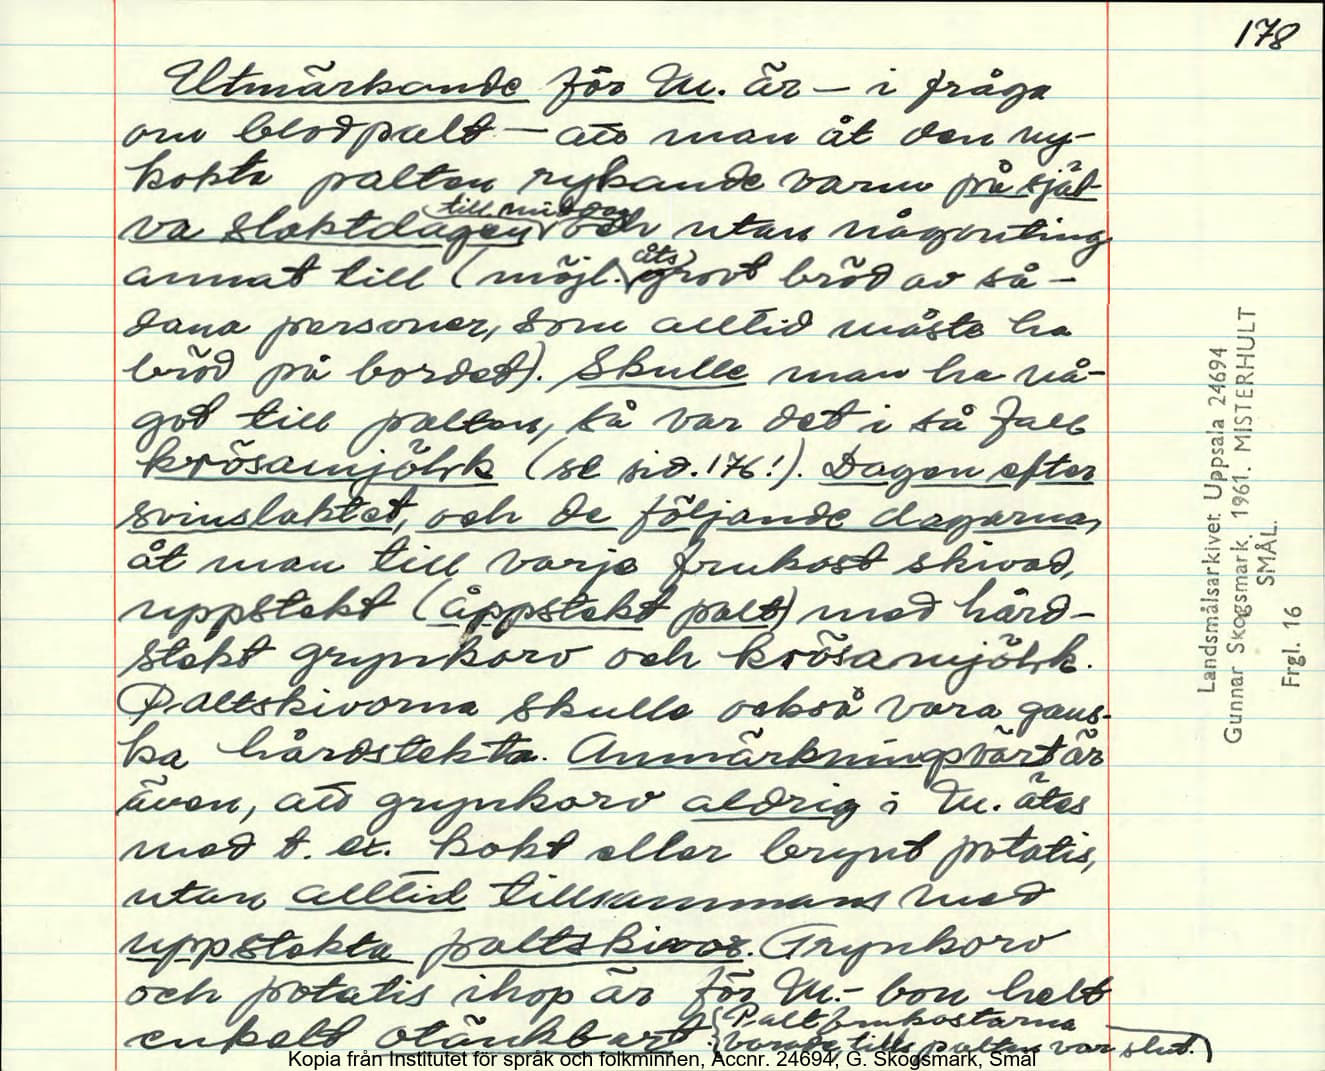 178
Utmärkande för M. är – i fråga
om blodpalt – att man åt den ny-
kokta palten rykande varm på själ-
va slaktdagen till middag och utan någonting
annat till (möjl. åts grovt bröd av så-
dana personer, som alltid måste ha
bröd på bordet). Skulle man ha nå-
got till palten, så var det i så fall
krösamjölk (se sid. 176!). Dagen efter
svinslaktet, och de följande dagarna,
åt man till varje frukost skivad,
uppstekt (åppstekt palt) med hård-
stekt grynkorv och krösamjölk.
Paltskivorna skulle också vara gans-
ka hårdstekta. Anmärkningsvärt är
även, att grynkorv aldrig i M. åtes
med t. ex. kokt eller brynt potatis,
utan alltid tillsammans med
uppstekta paltskivor. Grynkorv
och potatis ihop är för M.-bon helt
enkelt otänkbart. Paltfrukostarna
varade, tills palten var slut.
Landsmålsarkivet. Uppsala 24694
Gunnar Skogsmark. 1961. MISTERHULT
SMÅL.
Frgl. 16
Kopia från Institutet för språk och folkminnen, Accnr. 24694, G. Skogsmark, Smål